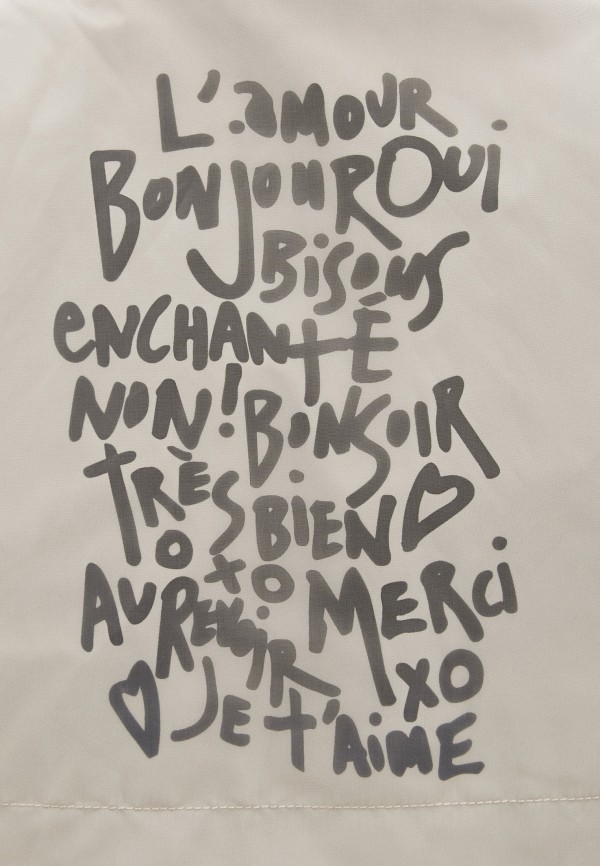 L'aMOUR
BONJOUR OUi
BiSOUS
eNCHANTÉ
NON! BONSOIR
TRÈS BiEN ♡
OXO
AU REVOiR MERCi
XO
♡ JE t'AiME